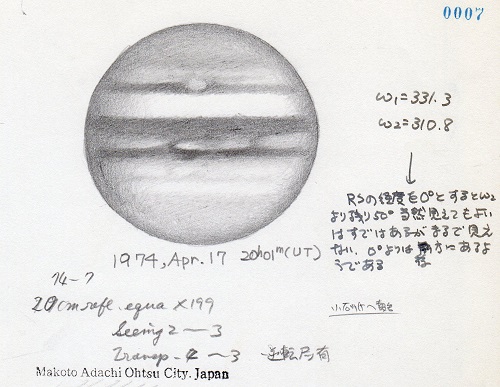 0007
ω1=331.3
ω2=310.8
RSの経度を0°とするとω2
より残り50° 当然見えてもよい
はずではあるがまるで見え
ない。0°よりは 方にあるよ
うである
1974, Apr. 17 20h01m(UT)
74-7
20cm refl. equa ×199
Seeing 2～3
Transp. 4～3 逆転 有
Makoto Adachi Ohtsu City. Japan